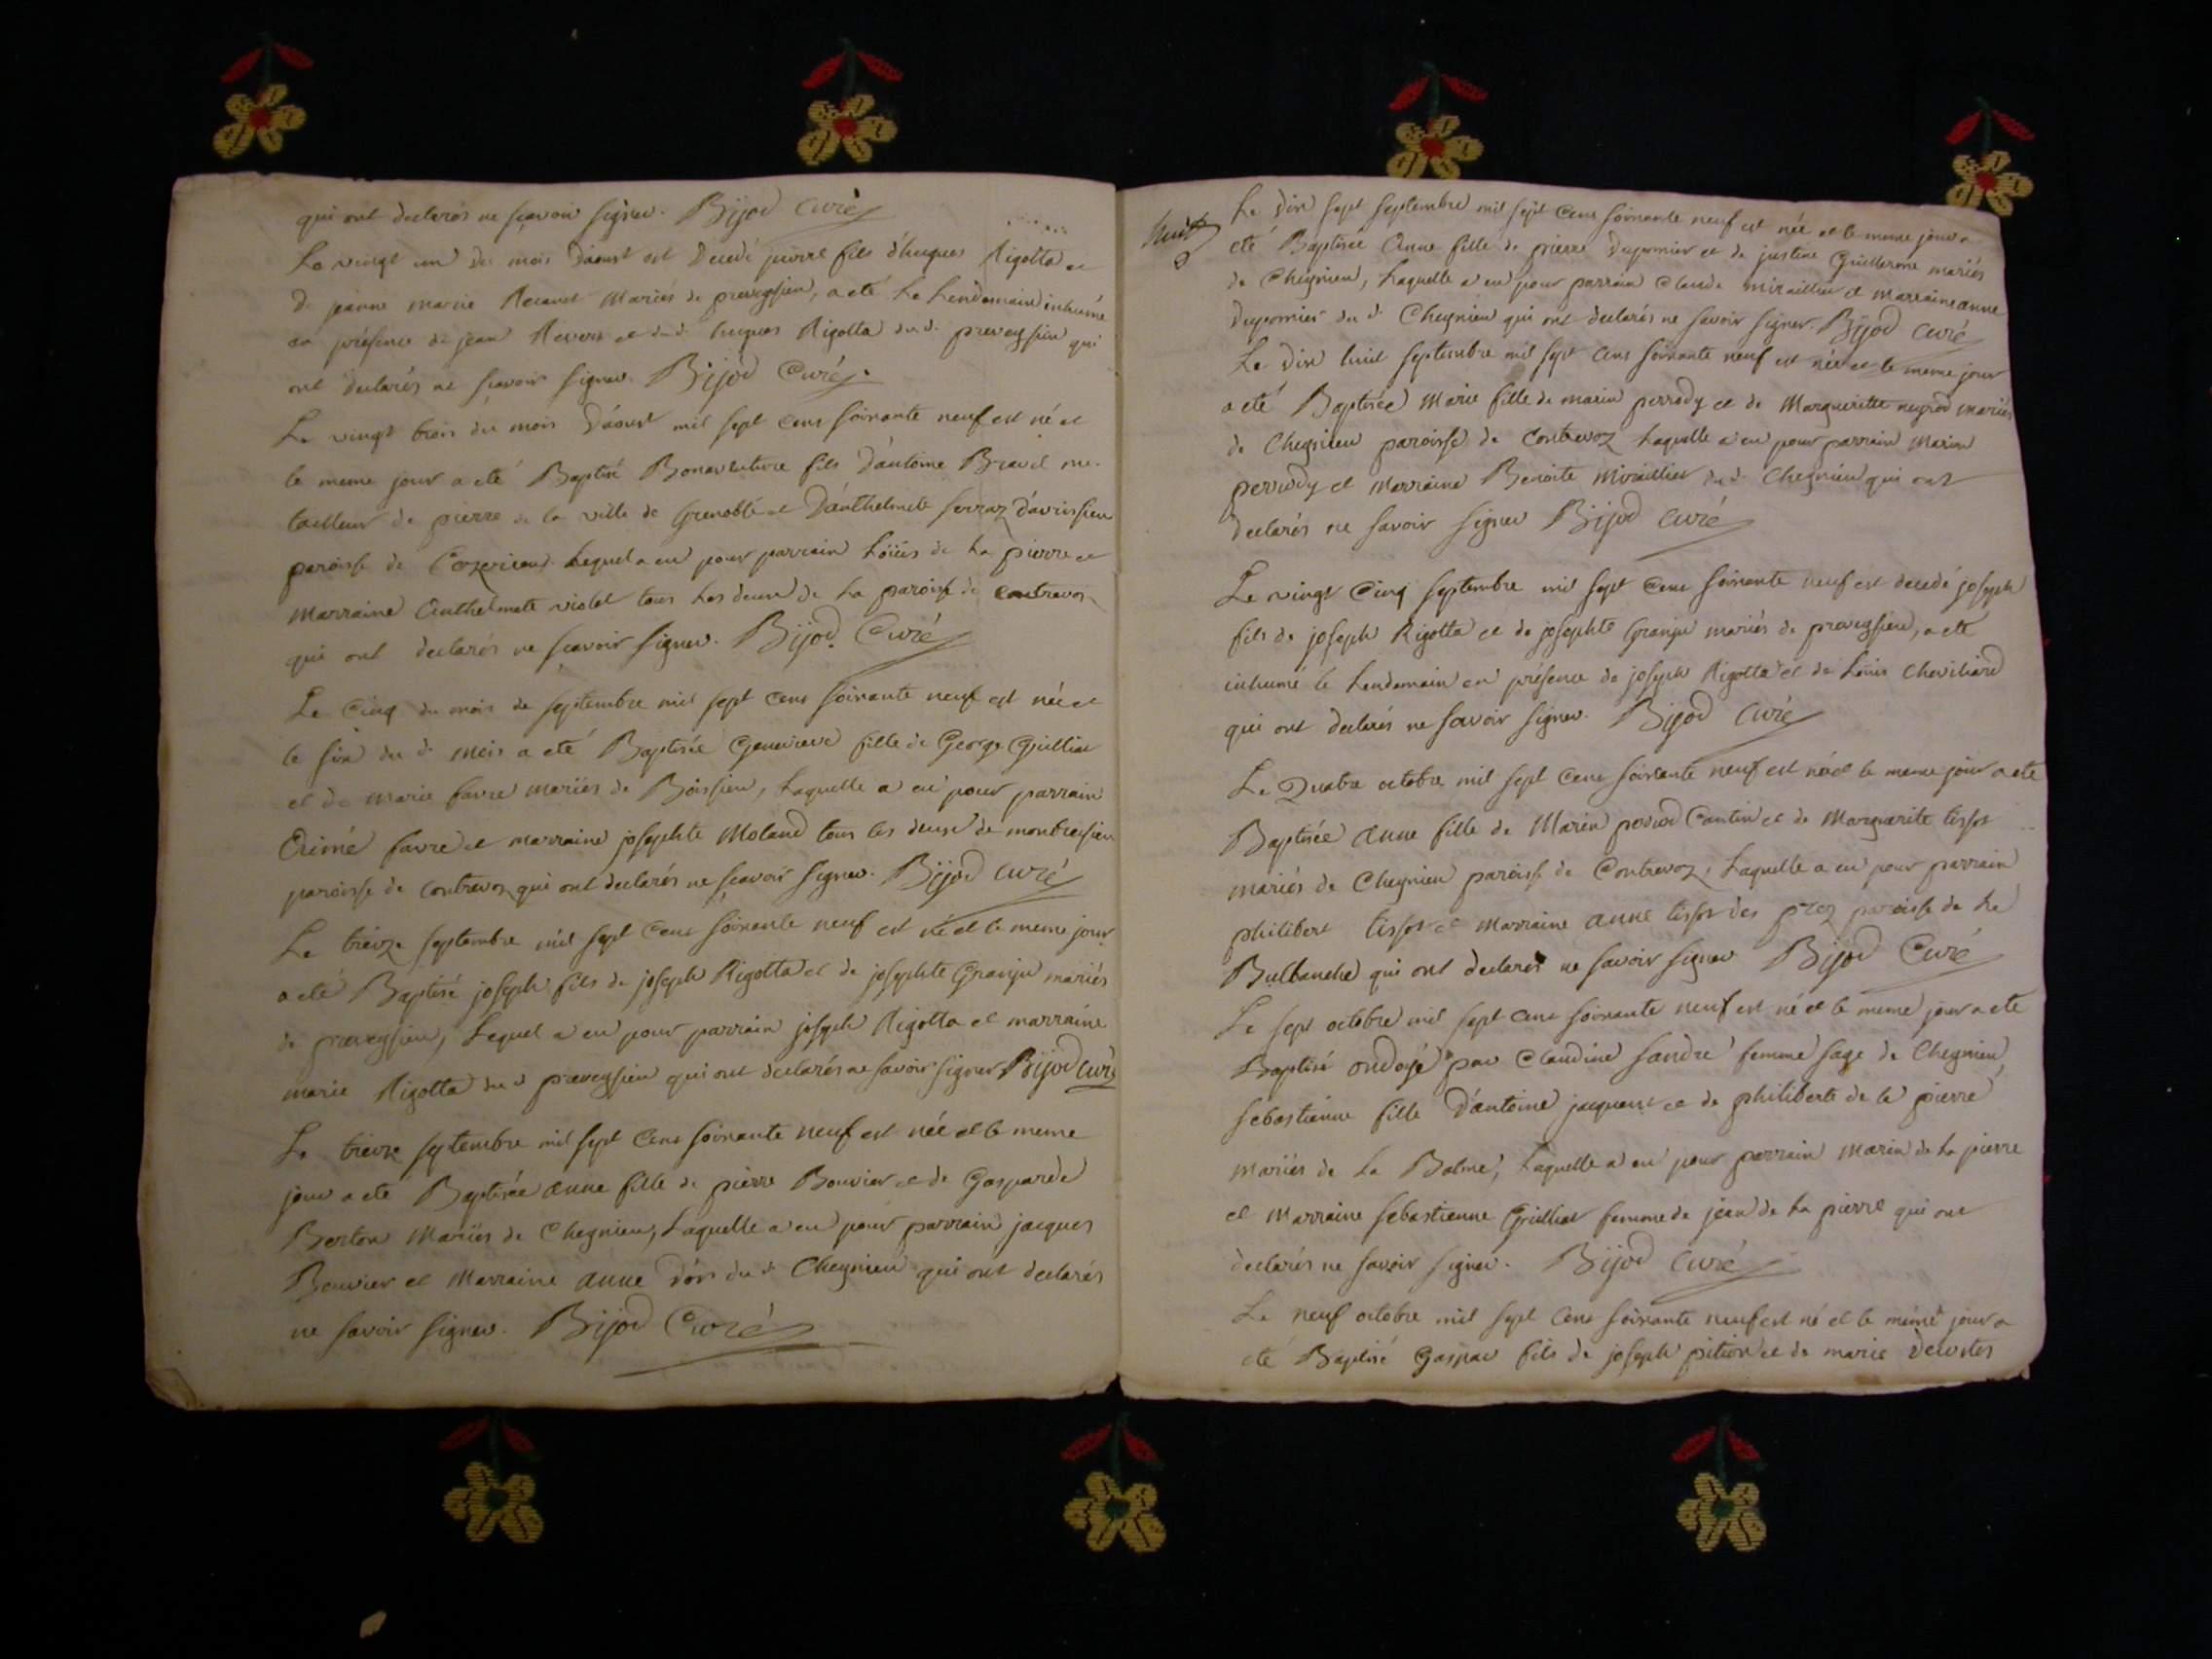 qui ont declarés ne sçavoir signer. Bijod Curé
Le vingt un du mois D'aoust est Decedé pierre fils d'hugues Rigotta et
de jeanne marie mariés de preveyssieu, a eté Le Lendemain inhumé
en présence de jean et du d. hugues Rigotta du d. preveyssieu qui
ont declarés ne sçavoir signer. Bijod Curé.
Le vingt trois du mois D'aoust mil sept cens soixante neuf est né et
le meme jour a eté Baptisé Bonaventure fils D'antoine
tailleur de pierre de la ville de Grenoble et D'anthelmete
paroisse de Lequel a eu pour parrain Loüis de La pierre et
marraine Anthelmete violet tous Les deux de La paroisse de Contrevoz
qui ont declarés ne sçavoir signer. Bijod. Curé
Le Cinq du mois de septembre mil sept cens soixante neuf est née et
le six du d. mois a eté Baptisée Genevieve fille de George Grilliat
et de marie favre mariés de Boissieu, Laquelle a eu pour parrain
Aimé favre et marraine josephte Moland tous les deux de montbreysieu
paroisse de contrevoz qui ont declarés ne sçavoir signer. Bijod curé
Le treize septembre mil sept cens soixante neuf est né et le meme jour
a eté Baptisé joseph fils de joseph Rigotta et de josephte Granju mariés
de preveyssieu, Lequel a eu pour parrain joseph Rigotta et marraine
marie Rigotta du d preveyssieu qui ont declarés ne savoir signer Bijod Curé
Le treize septembre mil sept cens soixante neuf est née et le meme
jour a eté Baptisée anne fille de pierre Bouvier et de Gasparde
Berlon Mariés de Chegnieu, Laquelle a eu pour parrain jacques
Bouvier et Marraine anne du d. Chegnieu qui ont declarés
ne savoir signer. Bijod Curé
huit
Le Dix sept septembre mil sept cens soixante neuf est née et le meme jour a
eté Baptisée Anne fille de pierre Dupornier et de justine Guillerme mariés
de Chegnieu, Laquelle a eu pour parrain Claude miraillier et Marraine anne
Dupornier du d. Chegnieu qui ont declarés ne savoir signer. Bijod Curé
Le Dix huit septembre mil sept cens soixante neuf est née et le meme jour
a eté Baptisée Marie fille de marin perrody et de Marguerite neyrod mariés
de Chegnieu paroisse de Contrevoz Laquelle a eu pour parrain Marin
perrody et Marraine Benoite Miraillier du d. Chegnieu qui ont
declarés ne savoir signer Bijod curé
Le vingt Cinq septembre mil sept cens soixante neuf est decedé joseph
fils de joseph Rigotta et de josephte Granju mariés de preveyssieu, a eté
inhumé le Lendemain en présence de joseph Rigotta et de Loüis Cheviliard
qui ont declarés ne savoir signer. Bijod Curé
Le Quatre octobre mil sept cens soixante neuf est née et le meme jour a eté
Baptisée anne fille de Marin Cantin et de Marguerite tissot
mariés de Chegnieu paroisse de Contrevoz, Laquelle a eu pour parrain
philibert tissot et Marraine anne tissot des prez paroisse de La
Burbanche qui ont declarés ne savoir signer Bijod Curé
Le sept octobre mil sept cens soixante neuf est né et le meme jour a eté
Baptisé ondoyé par Claudine Sandre femme sage de Chegnieu,
sebastienne fille D'antoine jacquemet et de philiberte de la pierre
mariés de La Balme, Laquelle a eu pour parrain Marin de La pierre
et Marraine sebastienne Grilliat femme de jean de La pierre qui ont
declarés ne savoir signer. Bijod Curé
Le neuf octobre mil sept cens soixante neuf est né et le mème jour a
eté Baptisé Gaspar fils de joseph pition et de marie